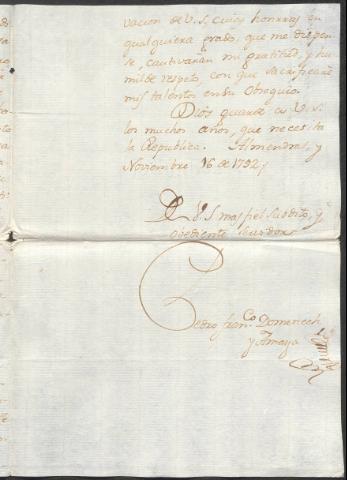 vacion de V.S. cuios honrras en
qualquiera grado, que me dispen-
se, cautivarán mi gratitud, y hu-
milde respeto, con que sacrificaré
mis talentos en su obsequio.
Dios guarde a V.S.
los muchos años, que necesita
la Republica. Almendras, y
Noviembre 16 de 1792,,
De V.S. mas fiel subdito, y
obediente
Pedro Fran.co Domenech
y Amaya